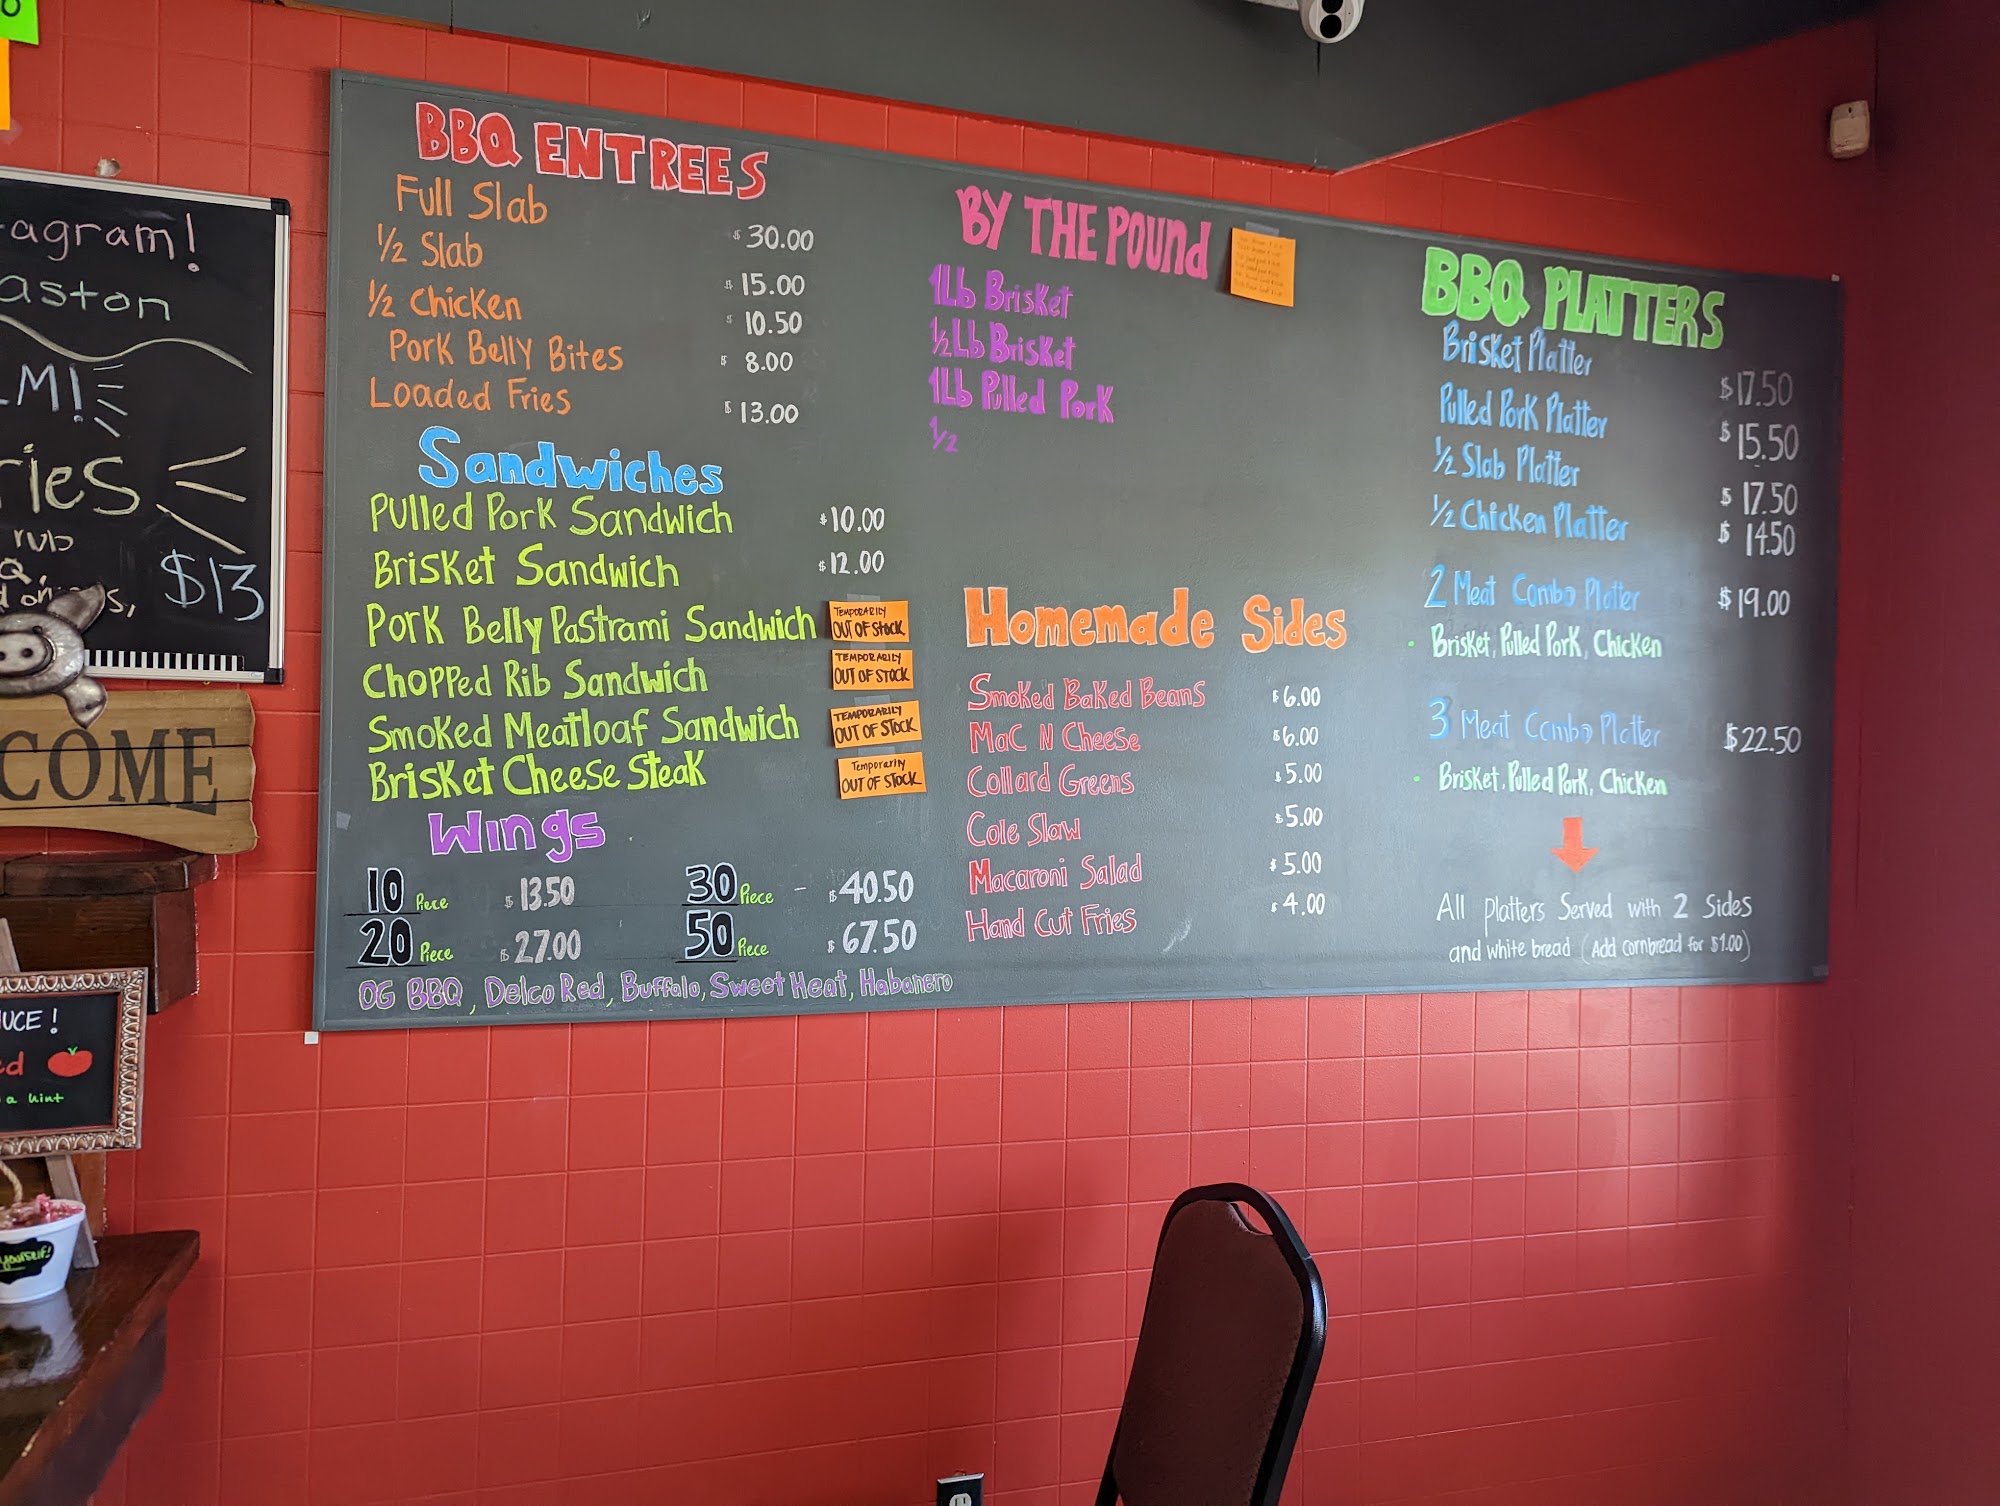 agram!
aston
M!
ries
rub
$13
COME
UCE!
ed
a hint
yourself!
BBQ ENTREES
Full Slab $30.00
1/2 Slab $15.00
1/2 Chicken $10.50
Pork Belly Bites $8.00
Loaded Fries $13.00
Sandwiches
Pulled Pork Sandwich $10.00
Brisket Sandwich $12.00
Pork Belly Pastrami Sandwich TEMPORARILY OUT OF STOCK
Chopped Rib Sandwich TEMPORARILY OUT OF STOCK
Smoked Meatloaf Sandwich TEMPORARILY OUT OF STOCK
Brisket Cheese Steak Temporarily OUT OF STOCK
Wings
10 Piece $13.50 30 Piece - $40.50
20 Piece $27.00 50 Piece $67.50
OG BBQ, Delco Red, Buffalo, Sweet Heat, Habanero
BY THE POUnd
1Lb Brisket
1/2 Lb Brisket
1Lb Pulled Pork
1/2
Homemade Sides
Smoked Baked Beans $6.00
Mac N Cheese $6.00
Collard Greens $5.00
Cole Slaw $5.00
Macaroni Salad $5.00
Hand Cut Fries $4.00
BBQ PLATTERS
Brisket Platter $17.50
Pulled Pork Platter $15.50
1/2 Slab Platter $17.50
1/2 Chicken Platter $14.50
2 Meat Combo Platter $19.00
• Brisket, Pulled Pork, Chicken
3 Meat Combo Platter $22.50
• Brisket, Pulled Pork, Chicken
All platters Served with 2 Sides
and white bread (Add cornbread for $1.00)